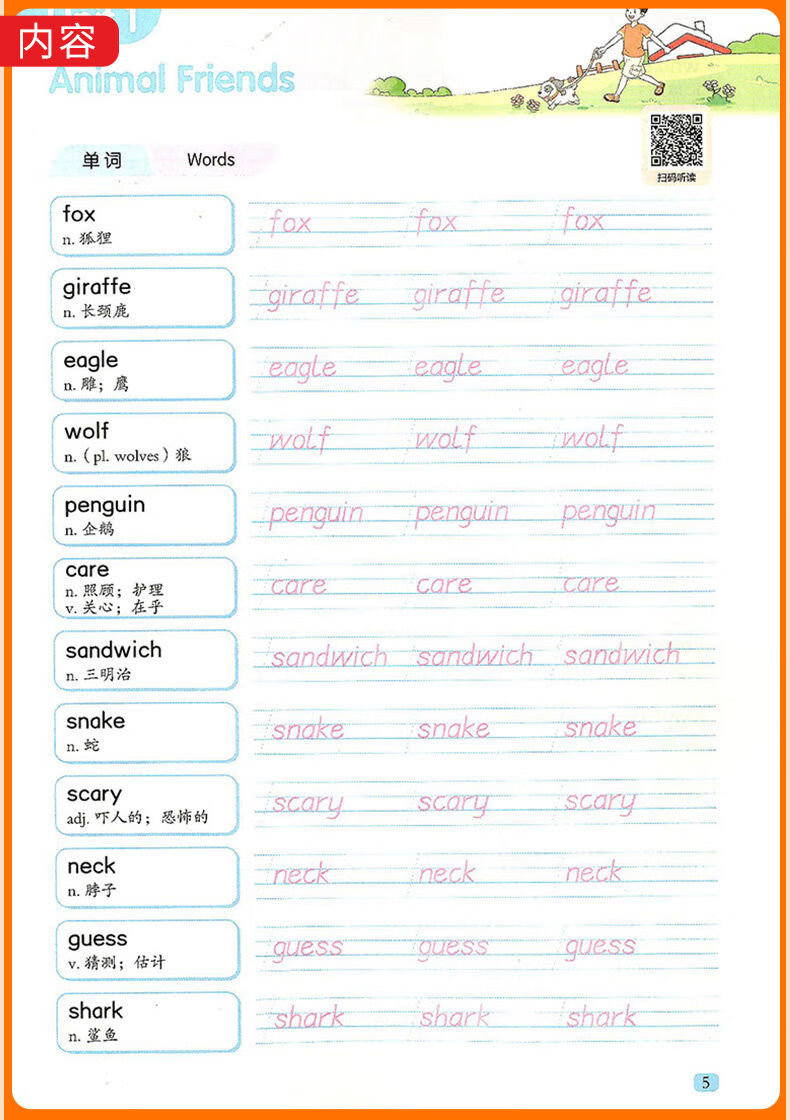 内容
Animal Friends
扫码听读
单词 Words
fox
n. 狐狸
fox fox fox
giraffe
n. 长颈鹿
giraffe giraffe giraffe
eagle
n. 雕；鹰
eagle eagle eagle
wolf
n.（pl. wolves）狼
wolf wolf wolf
penguin
n. 企鹅
penguin penguin penguin
care
n. 照顾；护理
v. 关心；在乎
care care care
sandwich
n. 三明治
sandwich sandwich sandwich
snake
n. 蛇
snake snake snake
scary
adj. 吓人的；恐怖的
scary scary scary
neck
n. 脖子
neck neck neck
guess
v. 猜测；估计
guess guess guess
shark
n. 鲨鱼
shark shark shark
5